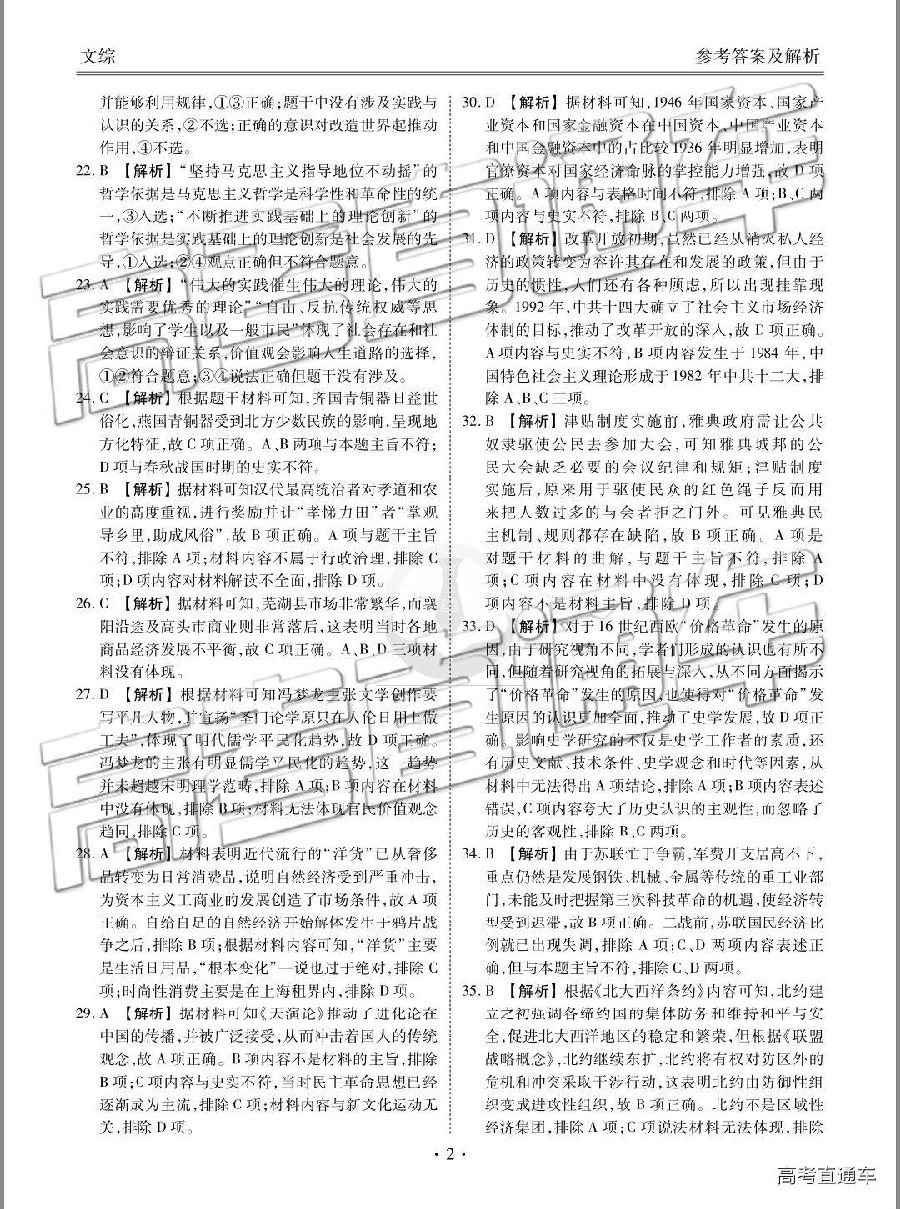 文综
参考答案及解析
并能够利用规律,①③正确;题干中没有涉及实践与
认识的关系,②不选;正确的意识对改造世界起推动
作用,④不选。
22. B 【解析】“坚持马克思主义指导地位不动摇”的
哲学依据是马克思主义哲学是科学性和革命性的统
一,③入选;“不断推进实践基础上的理论创新”的
哲学依据是实践基础上的理论创新是社会发展的先
导,①入选;②④观点正确但不符合题意。
23. A 【解析】“伟大的实践催生伟大的理论,伟大的
实践需要优秀的理论”“自由、反抗传统权威等思
想,影响了学生以及一般市民”体现了社会存在和社
会意识的辩证关系,价值观会影响人生道路的选择,
①②符合题意;③④说法正确但题干没有涉及。
24. C 【解析】根据题干材料可知,齐国青铜器日益世
俗化,燕国青铜器受到北方少数民族的影响,呈现地
方化特征,故 C 项正确。A、B 两项与本题主旨不符;
D 项与春秋战国时期的史实不符。
25. B 【解析】据材料可知汉代最高统治者对孝道和农
业的高度重视,进行奖励并让“孝悌力田”者“掌观
导乡里,助成风俗”,故 B 项正确。A 项与题干主旨
不符,排除 A 项;材料内容不属于行政治理,排除 C
项;D 项内容对材料解读不全面,排除 D 项。
26. C 【解析】据材料可知,芜湖县市场非常繁华,而襄
阳沿途及高头市商业则非常落后,这表明当时各地
商品经济发展不平衡,故 C 项正确。A、B、D 三项材
料没有体现。
27. D 【解析】根据材料可知冯梦龙主张文学创作要
写平凡人物,并宣扬“圣门论学原只在人伦日用上做
工夫”,体现了明代儒学平民化趋势,故 D 项正确。
冯梦龙的主张有明显儒学平民化的趋势,这一趋势
并未超越宋明理学范畴,排除 A 项;B 项内容在材料
中没有体现,排除 B 项;材料无法体现官民价值观念
趋同,排除 C 项。
28. A 【解析】材料表明近代流行的“洋货”已从奢侈
品转变为日常消费品,说明自然经济受到严重冲击,
为资本主义工商业的发展创造了市场条件,故 A 项
正确。自给自足的自然经济开始解体发生于鸦片战
争之后,排除 B 项;根据材料内容可知,“洋货”主要
是生活日用品,“根本变化”一说也过于绝对,排除 C
项;时尚性消费主要是在上海租界内,排除 D 项。
29. A 【解析】据材料可知《天演论》推动了进化论在
中国的传播,并被广泛接受,从而冲击着国人的传统
观念,故 A 项正确。B 项内容不是材料的主旨,排除
B 项;C 项内容与史实不符,当时民主革命思想已经
逐渐成为主流,排除 C 项;材料内容与新文化运动无
关,排除 D 项。
30. D 【解析】据材料可知,1946 年国家资本、国家产
业资本和国家金融资本在中国资本、中国产业资本
和中国金融资本中的占比较 1936 年明显增加,表明
官僚资本对国家经济命脉的掌控能力增强,故 D 项
正确。A 项内容与表格时间不符,排除 A 项;B、C 两
项内容与史实不符,排除 B、C 两项。
31. D 【解析】改革开放初期,虽然已经从消灭私人经
济的政策转变为容许其存在和发展的政策,但由于
历史的惯性,人们还有各种顾虑,所以出现挂靠现
象。1992 年,中共十四大确立了社会主义市场经济
体制的目标,推动了改革开放的深入,故 D 项正确。
A 项内容与史实不符,B 项内容发生于 1984 年,中
国特色社会主义理论形成于 1982 年中共十二大,排
除 A、B、C 三项。
32. B 【解析】津贴制度实施前,雅典政府需让公共
奴隶驱使公民去参加大会,可知雅典城邦的公
民大会缺乏必要的会议纪律和规矩;津贴制度
实施后,原来用于驱使民众的红色绳子反而用
来把人数过多的与会者拒之门外。可见雅典民
主机制、规则都存在缺陷,故 B 项正确。A 项是
对题干材料的曲解,与题干主旨不符,排除 A
项;C 项内容在材料中没有体现,排除 C 项;D
项内容不是材料主旨,排除 D 项。
33. D 【解析】对于 16 世纪西欧“价格革命”发生的原
因,由于研究视角不同,学者们形成的认识也有所不
同,但随着研究视角的拓展与深入,从不同方面揭示
了“价格革命”发生的原因,也使得对“价格革命”发
生原因的认识更加全面,推动了史学发展,故 D 项正
确。影响史学研究的不仅是史学工作者的素质,还
有历史文献、技术条件、史学观念和时代等因素,从
材料中无法得出 A 项结论,排除 A 项;B 项内容表述
错误,C 项内容夸大了历史认识的主观性,而忽略了
历史的客观性,排除 B、C 两项。
34. B 【解析】由于苏联忙于争霸,军费开支居高不下,
重点仍然是发展钢铁、机械、金属等传统的重工业部
门,未能及时把握第三次科技革命的机遇,使经济转
型受到迟滞,故 B 项正确。二战前,苏联国民经济比
例就已出现失调,排除 A 项;C、D 两项内容表述正
确,但与本题主旨不符,排除 C、D 两项。
35. B 【解析】根据《北大西洋条约》内容可知,北约建
立之初强调各缔约国的集体防务和维持和平与安
全,促进北大西洋地区的稳定和繁荣,但根据《联盟
战略概念》,北约继续东扩,北约将有权对防区外的
危机和冲突采取干涉行动,这表明北约由防御性组
织变成进攻性组织,故 B 项正确。北约不是区域性
经济集团,排除 A 项;C 项说法材料无法体现,排除
· 2 ·
高考直通车
高考直通车
高考直通车